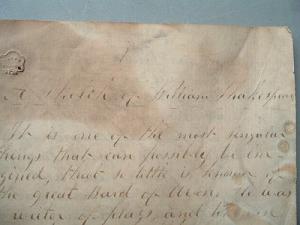 A Sketch of William Shakespeare
It is one of the most singular
things that can possibly be im
agined, that so little is known of
the great Bard of Avon. He was
writer of plays, and